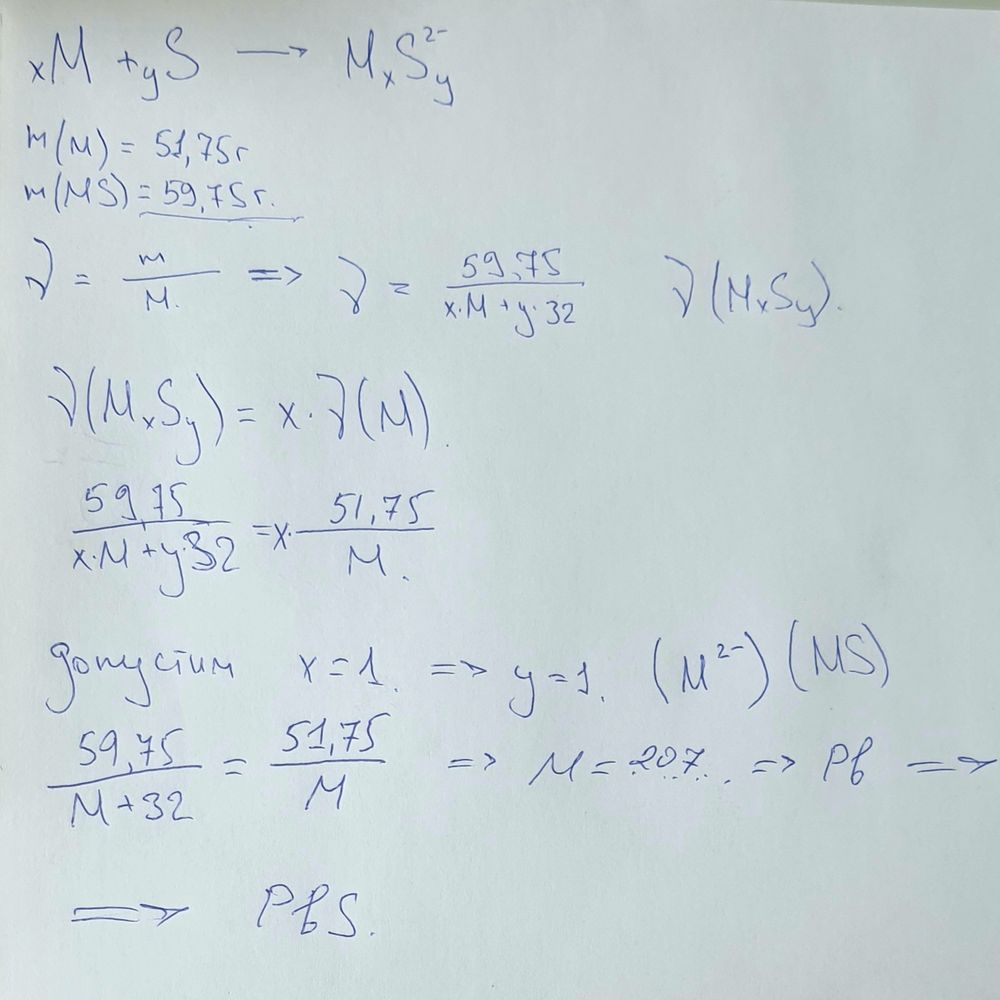 xM + yS → MₓSᵧ²⁻
m(M) = 51,75г
m(MS) = 59,75г.
ν = m/M. => ν = 59,75/(x·M + y·32) ν(MₓSᵧ).
ν(MₓSᵧ) = x·ν(M).
59,75/(x·M + y·32) = x·51,75/M.
допустим x = 1. => y = 1. (M²⁻) (MS)
59,75/(M + 32) = 51,75/M => M = 207... => Pb =>
=> PbS.